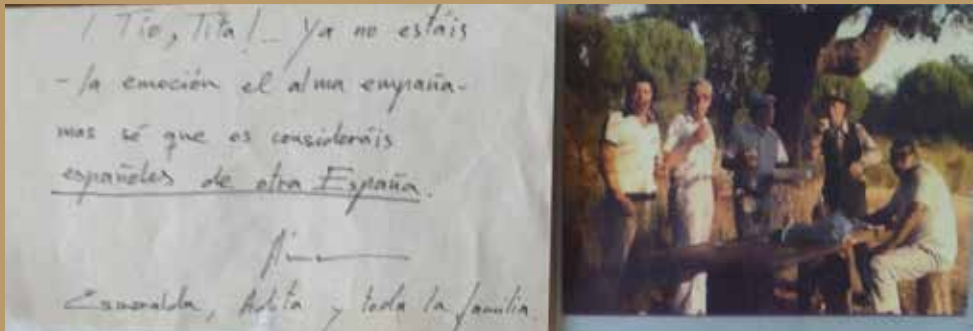 ¡Tío, Tita! - Ya no estáis
- la emoción el alma empaña -
mas sé que os consideráis
españoles de otra España.
Esmeralda, y toda la familia.